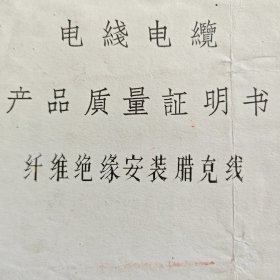 电綫电纜
产品质量証明书
纤维绝缘安装腊克线